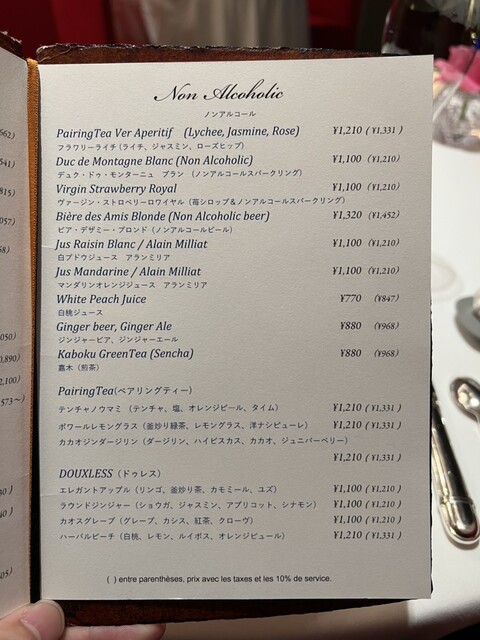 Non Alcoholic
ノンアルコール
PairingTea Ver Aperitif (Lychee, Jasmine, Rose) ¥1,210 (¥1,331)
フラワリーライチ(ライチ、ジャスミン、ローズヒップ)
Duc de Montagne Blanc (Non Alcoholic) ¥1,100 (¥1,210)
デュク・ドゥ・モンターニュ ブラン (ノンアルコールスパークリング)
Virgin Strawberry Royal ¥1,100 (¥1,210)
ヴァージン・ストロベリーロワイヤル (苺シロップ&ノンアルコールスパークリング)
Bière des Amis Blonde (Non Alcoholic beer) ¥1,320 (¥1,452)
ビア・デザミー・ブロンド (ノンアルコールビール)
Jus Raisin Blanc / Alain Milliat ¥1,100 (¥1,210)
白ブドウジュース アランミリア
Jus Mandarine / Alain Milliat ¥1,100 (¥1,210)
マンダリンオレンジジュース アランミリア
White Peach Juice ¥770 (¥847)
白桃ジュース
Ginger beer, Ginger Ale ¥880 (¥968)
ジンジャービア、ジンジャーエール
Kaboku GreenTea (Sencha) ¥880 (¥968)
嘉木 (煎茶)
PairingTea(ペアリングティー)
テンチャノウマミ (テンチャ、塩、オレンジピール、タイム) ¥1,210 (¥1,331)
ボワールレモングラス (釜炒り緑茶、レモングラス、洋ナシピューレ) ¥1,210 (¥1,331)
カカオジンダージリン (ダージリン、ハイビスカス、カカオ、ジュニパーベリー)
¥1,210 (¥1,331)
DOUXLESS (ドゥレス)
エレガントアップル (リンゴ、釜炒り茶、カモミール、ユズ) ¥1,100 (¥1,210)
ラウンドジンジャー (ショウガ、ジャスミン、アプリコット、シナモン) ¥1,100 (¥1,210)
カオスグレープ (グレープ、カシス、紅茶、クローヴ) ¥1,100 (¥1,210)
ハーバルピーチ (白桃、レモン、ルイボス、オレンジピュール) ¥1,210 (¥1,331)
( ) entre parenthèses, prix avec les taxes et les 10% de service.